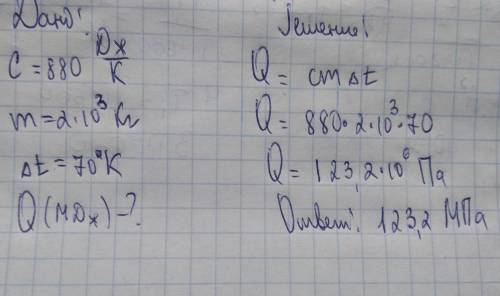 Дано:
C = 880 Дж/К
m = 2·10³ кг
Δt = 70°K
Q (МДж) - ?
Решение:
Q = cmΔt
Q = 880·2·10³·70
Q = 123,2·10⁶ Па
Ответ: 123,2 МПа